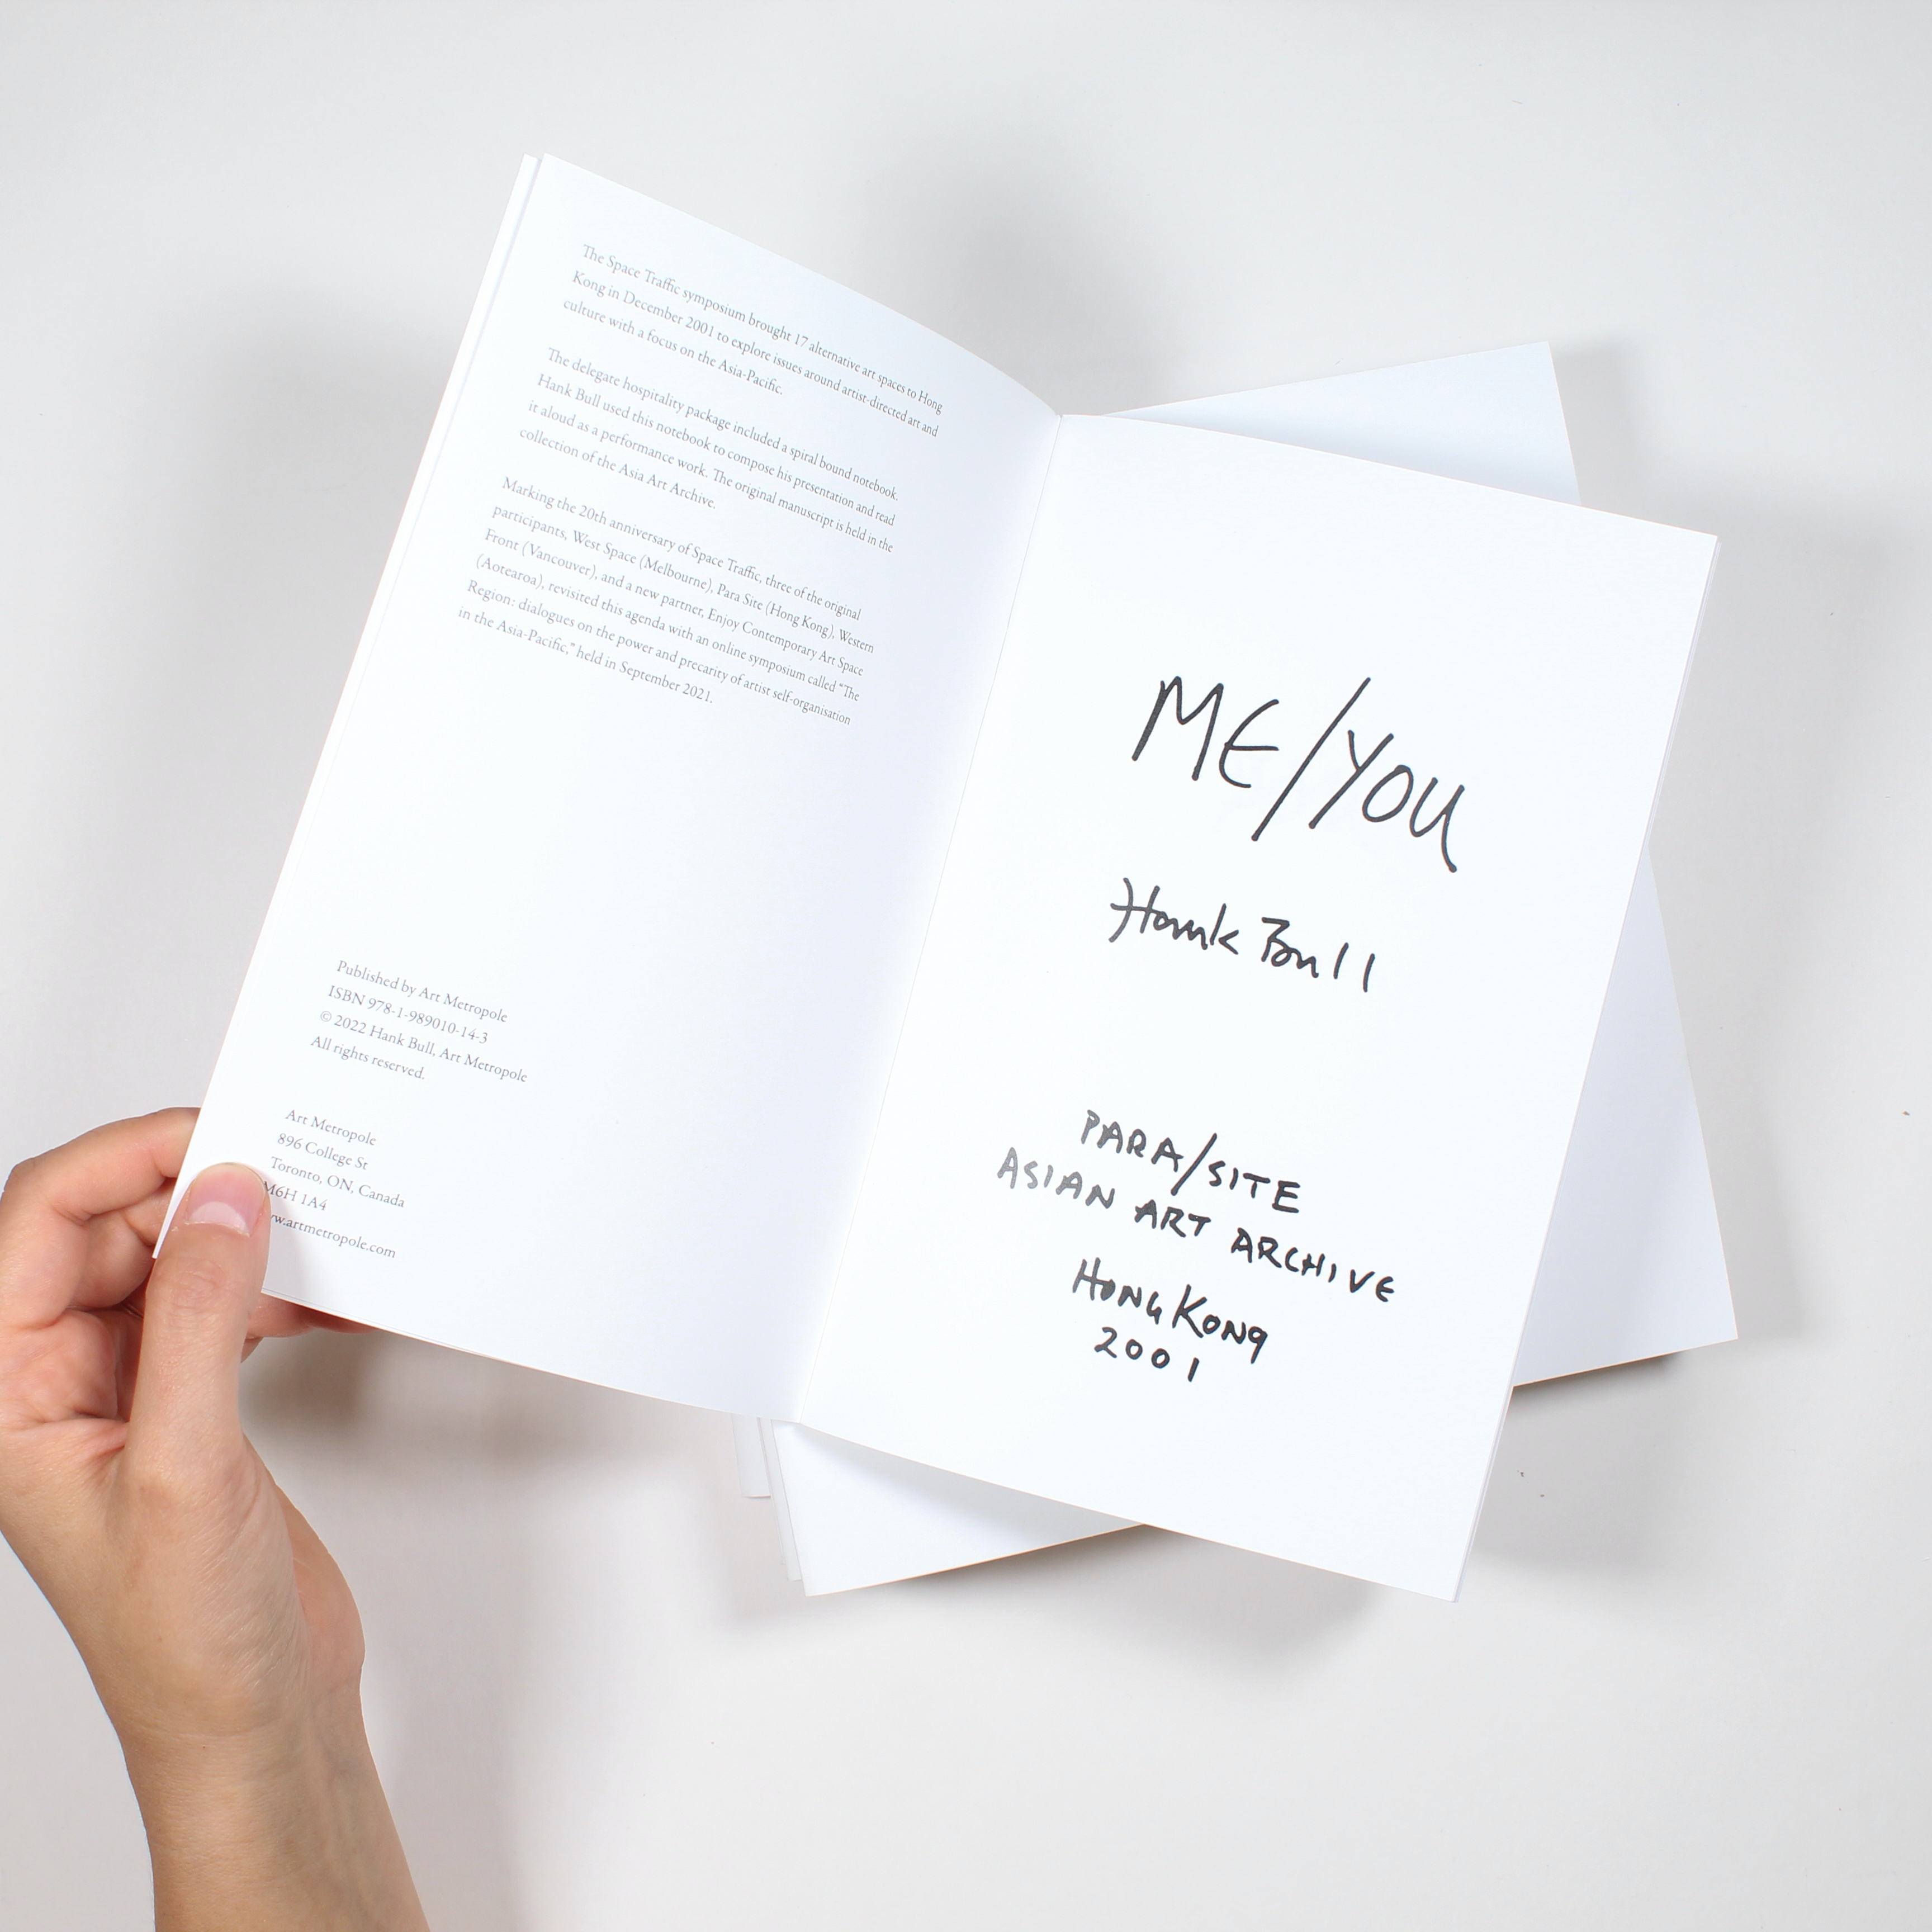 The Space Traffic symposium brought 17 alternative art spaces to Hong
Kong in December 2001 to explore issues around artist-directed art and
culture with a focus on the Asia-Pacific.
The delegate hospitality package included a spiral bound notebook.
Hank Bull used this notebook to compose his presentation and read
it aloud as a performance work. The original manuscript is held in the
collection of the Asia Art Archive.
Marking the 20th anniversary of Space Traffic, three of the original
participants, West Space (Melbourne), Para Site (Hong Kong), Western
Front (Vancouver), and a new partner, Enjoy Contemporary Art Space
(Aotearoa), revisited this agenda with an online symposium called "The
Region: dialogues on the power and precarity of artist self-organisation
in the Asia-Pacific," held in September 2021.
Published by Art Metropole
ISBN 978-1-989010-14-3
© 2022 Hank Bull, Art Metropole
All rights reserved.
Art Metropole
896 College St
Toronto, ON, Canada
M6H 1A4
w.artmetropole.com
ME/YOU
Hank Bull
PARA/SITE
ASIAN ART ARCHIVE
HONG KONG
2001